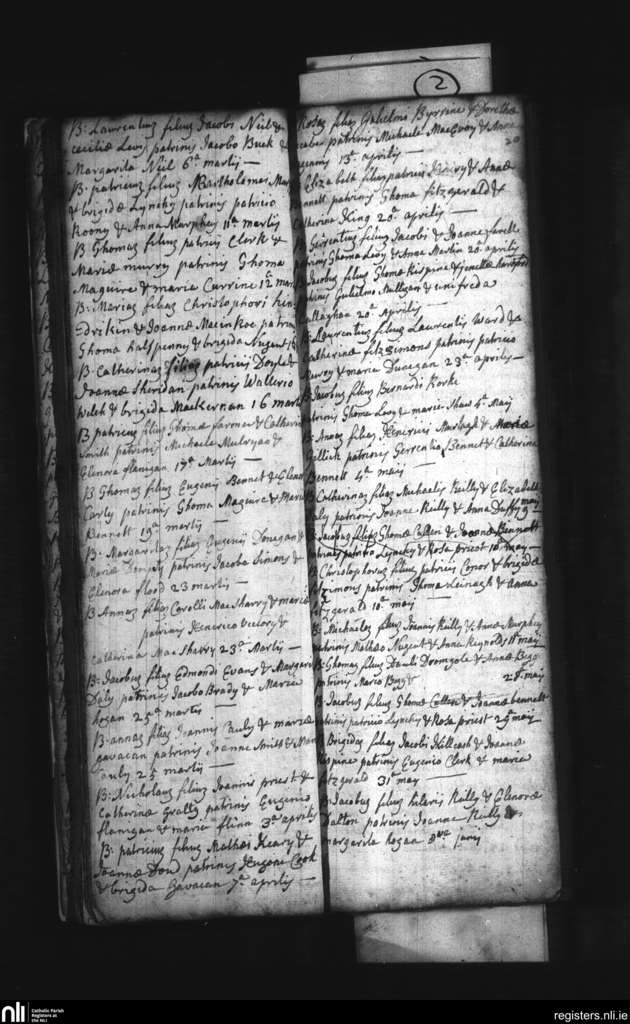 2
B: Laurentius filius Jacobi Neil &
ceciliæ Levy patrinis Jacobo Buck &
Margarita Neil 6ª martij —
B: patricius filius Bartholomei
& brigidæ Lynchy patrinis patricio
Roony & Anna Murphey 11ª martij
B Thomas filius patricii Clerk &
Mariæ murry patrinis Thoma
Maguire & maria Currine 12ª
B: Marias filias Christophori
& Joannæ patrin
Thoma halfpenny & brigida Nugent
B: Catherinas filias patricii Doyle &
Joannæ Sheridan patrinis Walterio
Welch & brigida MacKernan 16 mart
B patricius filius Thomæ & Catherin
Smith patrinis Michaele Mulryan &
Elenora flanigan 17ª Martij —
B Thomas filius Eugenii Bennet &
Carly patrinis Thoma Maguire & Mari
Bennott 19ª martij —
B: Margaritas filias Eugenii Donegan &
Mariæ patrinis Jacobo Simons &
Elenora flood 23 martij —
B Annas filias Carolli MacSharry & mariæ
patrinis Henerico &
Catharina MacSharry 23ª Martij —
B: Jacobus filius Edmondi Evans & Margari
Daly patrinis Jacobo Brady & Maria
hogan 25ª martij —
B: annas filias Joannis Cauly & mariæ
gavacan patrinis Joanne Smith &
Cauly 25 martij —
B: Nicholaus filius Joannis priest &
Catherinæ patrinis Eugenio
flanigan & maria flinn 3ª aprilis
B: patricius filius Matheæ Keary &
Joannæ Dow patrinis Eugeni Cook
& brigida Gavacan 7ª aprilis —
Rosas filias Gulielmi Byrrine & Dorothæ
patrinis Michaele MacEvoy & Anna
13ª aprilis — 20
Elizabeth filias patricii & Annæ
patrinis Thoma fitzgerald &
Catherina King 20ª aprilis —
B Terentius filius Jacobi & Joannæ
patrinis Thoma Levy & Anna Martin 20ª aprilis
B Jacobus filius Thomæ Kispine &
patrinis Gulielmo Mulligan & winifreda
20ª aprilis —
B: Laurentius filius Laurentii Ward &
Catherinæ fitzsimons patrinis patricio
& maria Dunegan 23ª aprilis —
B: Jacobus filius Bernardi Rorke
patrinis Thoma Levy & maria Shaw 4ª Maij
B: Annas filias Henerici Murtagh & Mariæ
Gillick patrinis Terrentio Bennet & Catherina
Bennott 4ª maij —
B Catherinas filias Michaelis Reilly & Elizabeth
Daly patrinis Joanne Reilly & Anna Duffy 9ª maij
B: Jacobus filius Thomæ Cullen & Joannæ Bennott
patrinis patricio Lynchy & Rosa priest 10 may —
B Christophorus filius patricii Conor & brigidæ
fitzsimons patrinis Thoma & Anna
fitzgerald 10ª maij —
B: Michaelas filius Joannis Reilly & Annæ Murphy
patrinis Matheo Nugent & Anna Reynolds 11ª maij
B: Thomas filius Danieli & Annæ Begg
patrinis Marco Bagg & 28ª may
B: Jacobus filius Thomæ Cullen & Joannæ bennett
patrinis patricio Lynchy & Rosa priest 29ª may
B Brigidas filias Jacobi Killeash & Joannæ
patrinis Eugenio Clerk & maria
fitzgerald 31ª may —
B: Jacobus filius hilerii Reilly & Elenoræ
Dalton patrinis Joanne Reilly &
margarita hogan junij
nli
Catholic Parish
Registers at
the NLI
registers.nli.ie